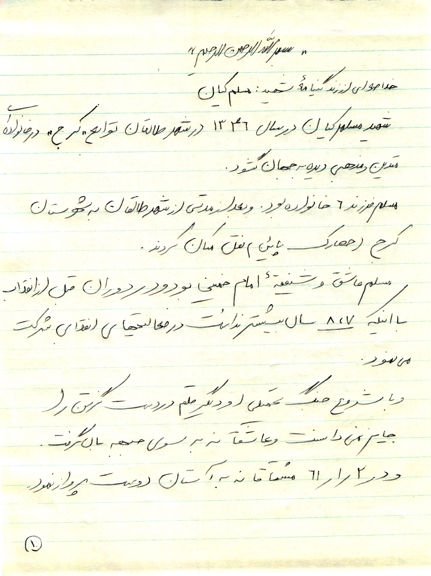 « بسم الله الرحمن الرحیم »
خلاصه‌ای از زندگینامهٔ شهید: مسلم کیان
شهید مسلم کیان در سال ۱۳۴۶ در شهر طالقان توابع «کرج» در خانواده‌ای
متدین و مذهبی دیده به جهان گشود.
مسلم فرزند ۶ خانواده بود. و بعد از مدتی از شهر طالقان به شهرستان
کرج (حصارک پائین) نقل مکان کردند.
مسلم عاشق و شیفتهٔ امام خمینی بود و در دوران قبل از انقلاب
با اینکه ۸،۷ سال بیشتر نداشت در فعالیتهای انقلابی شرکت
می نمود.
و با شروع جنگ تحمیلی او دیگر قلم در دست گرفتن را
جایز نمی دانست و عاشقانه به سوی جبهه بال گرفت.
و در ۶۱/۱/۲ مشتاقانه به آستان دوست پرواز نمود.
۱